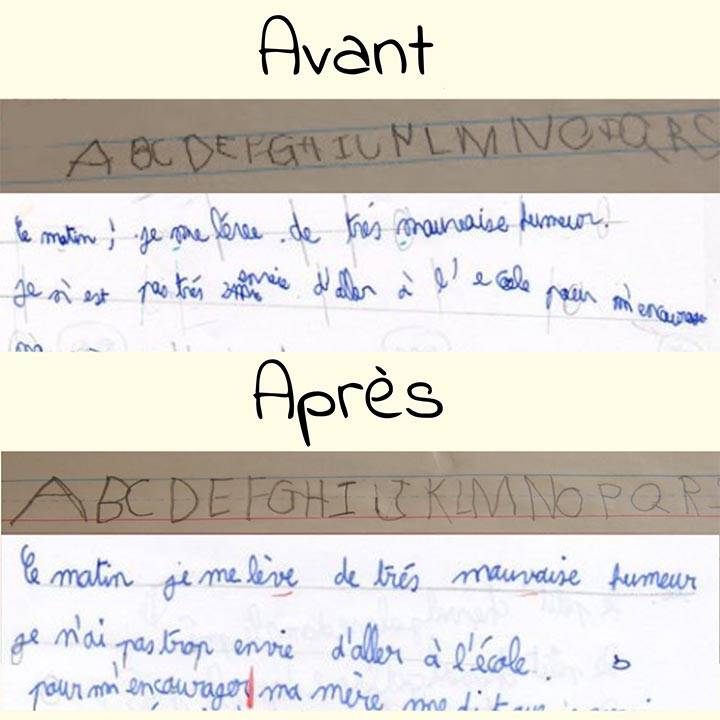 Avant
A B C D E F G H I U N L M N O P Q R S
Ce matin ! je me lèree de trés mauvaise humeur.
Je n'est pas trés envie d'aller à l' ecole pour m'encourager
Après
A B C D E F G H I J K L M N O P Q R
Ce matin je me lève de trés mauvaise humeur
je n'ai pas trop envie d'aller à l'école.
pour m'encourager ma mère me dit que